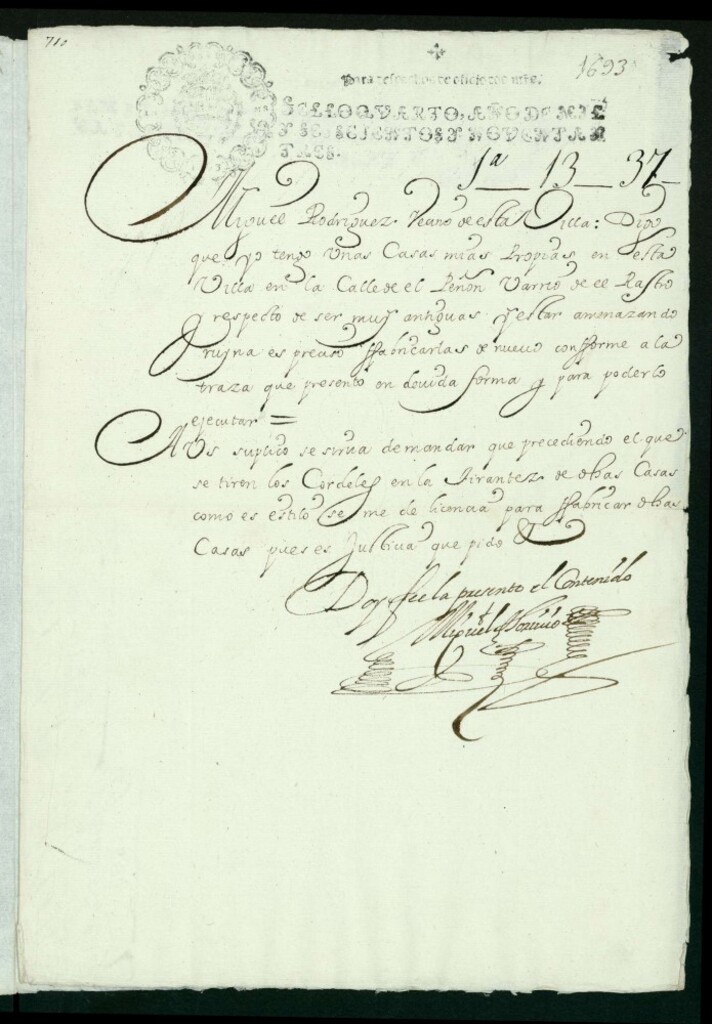 1693
Para despachos de oficio dos mrs.
SELLO QVARTO, AÑO DE MIL
Y SEISCIENTOS Y NOVENTA Y
TRES.
1ª 13 37
Miguel Rodriguez Veçino de esta Villa: Digo
que yo tengo Unas Casas mias Propias en esta
Villa en la Calle de el Peñon Varrio de el Rastro
y respecto de ser muy antiguas y estar amenazando
ruyna es preciso ffabricarlas de nuevo conforme a la
traza que presento en devida forma y para poderlo
ejecutar =
A Vs suplico se sirva de mandar que precediendo el que
se tiren los Cordeles en la Tirantez de dhas Casas
como es estilo se me de licencia para ffabricar dhas
Casas pues es Justicia que pido &
Doy fee la presento el Contenido